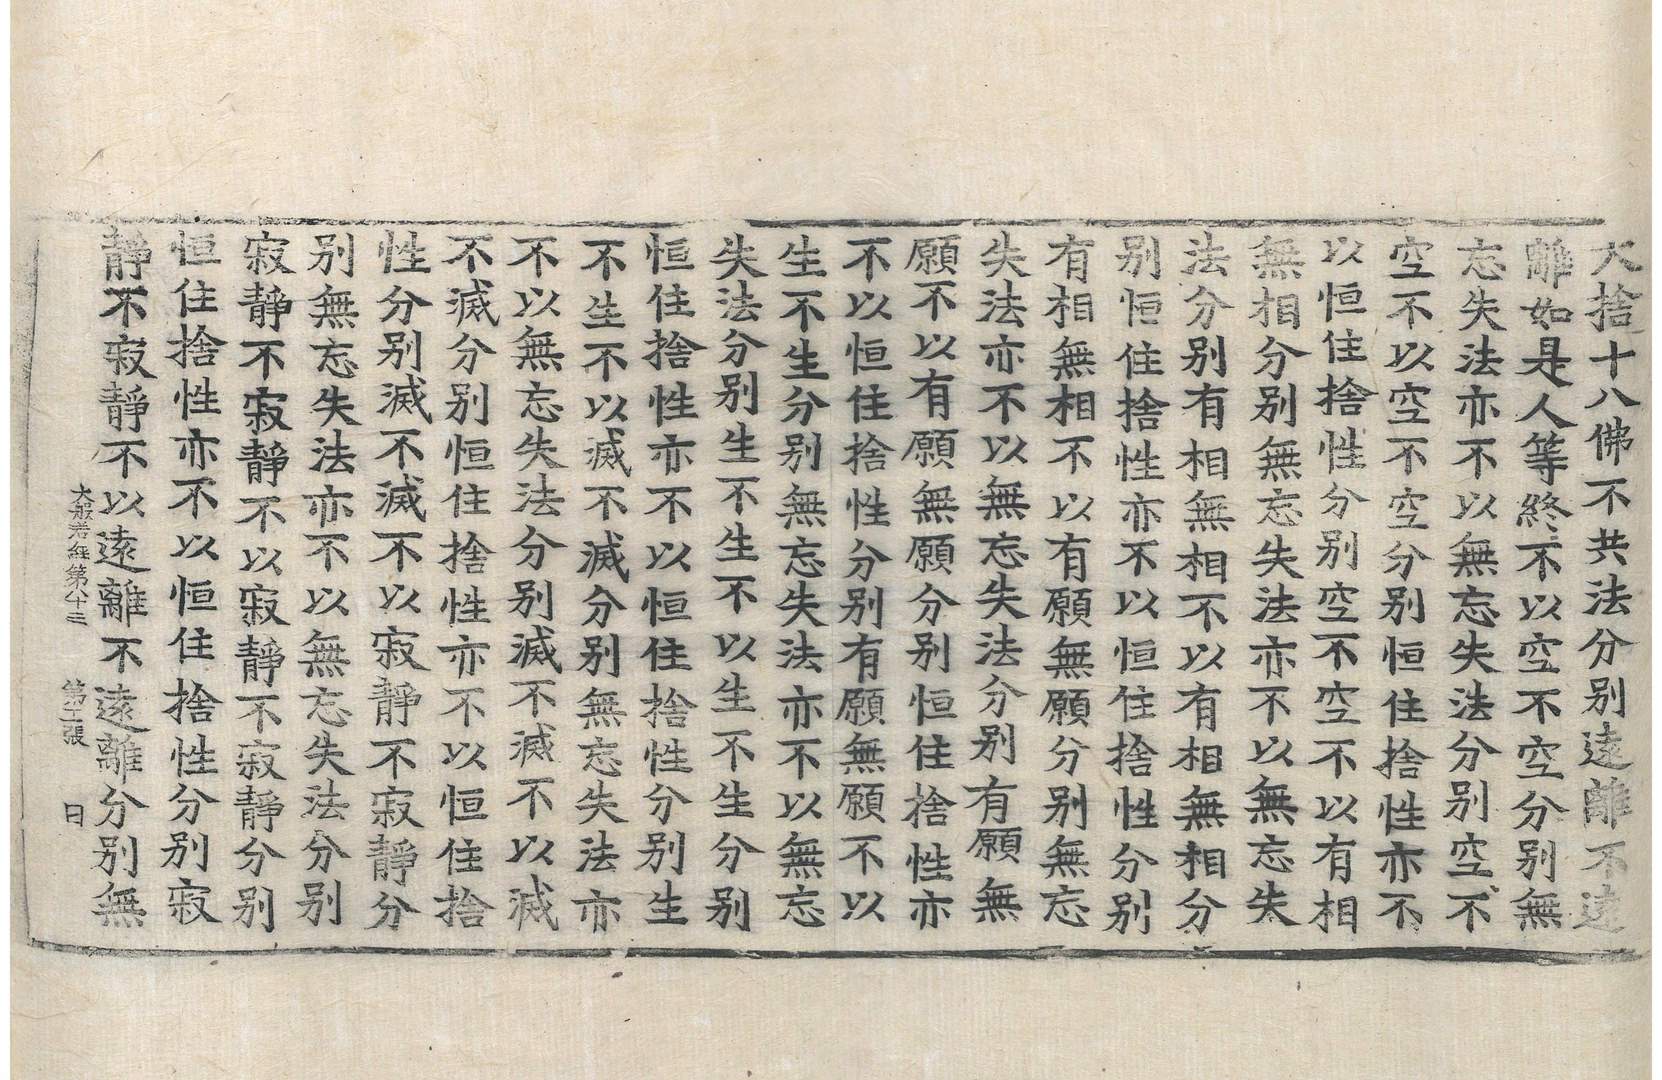 大捨十八佛不共法分別遠離不遠
離如是人等終不以空不空分別無
忘失法亦不以無忘失法分別空不
空不以空不空分別恒住捨性亦不
以恒住捨性分別空不空不以有相
無相分別無忘失法亦不以無忘失
法分別有相無相不以有相無相分
別恒住捨性亦不以恒住捨性分別
有相無相不以有願無願分別無忘
失法亦不以無忘失法分別有願無
願不以有願無願分別恒住捨性亦
不以恒住捨性分別有願無願不以
生不生分別無忘失法亦不以無忘
失法分別生不生不以生不生分別
恒住捨性亦不以恒住捨性分別生
不生不以滅不滅分別無忘失法亦
不以無忘失法分別滅不滅不以滅
不滅分別恒住捨性亦不以恒住捨
性分別滅不滅不以寂靜不寂靜分
別無忘失法亦不以無忘失法分別
寂靜不寂靜不以寂靜不寂靜分別
恒住捨性亦不以恒住捨性分別寂
靜不寂靜不以遠離不遠離分別無
大般若經第八十三 第張 日